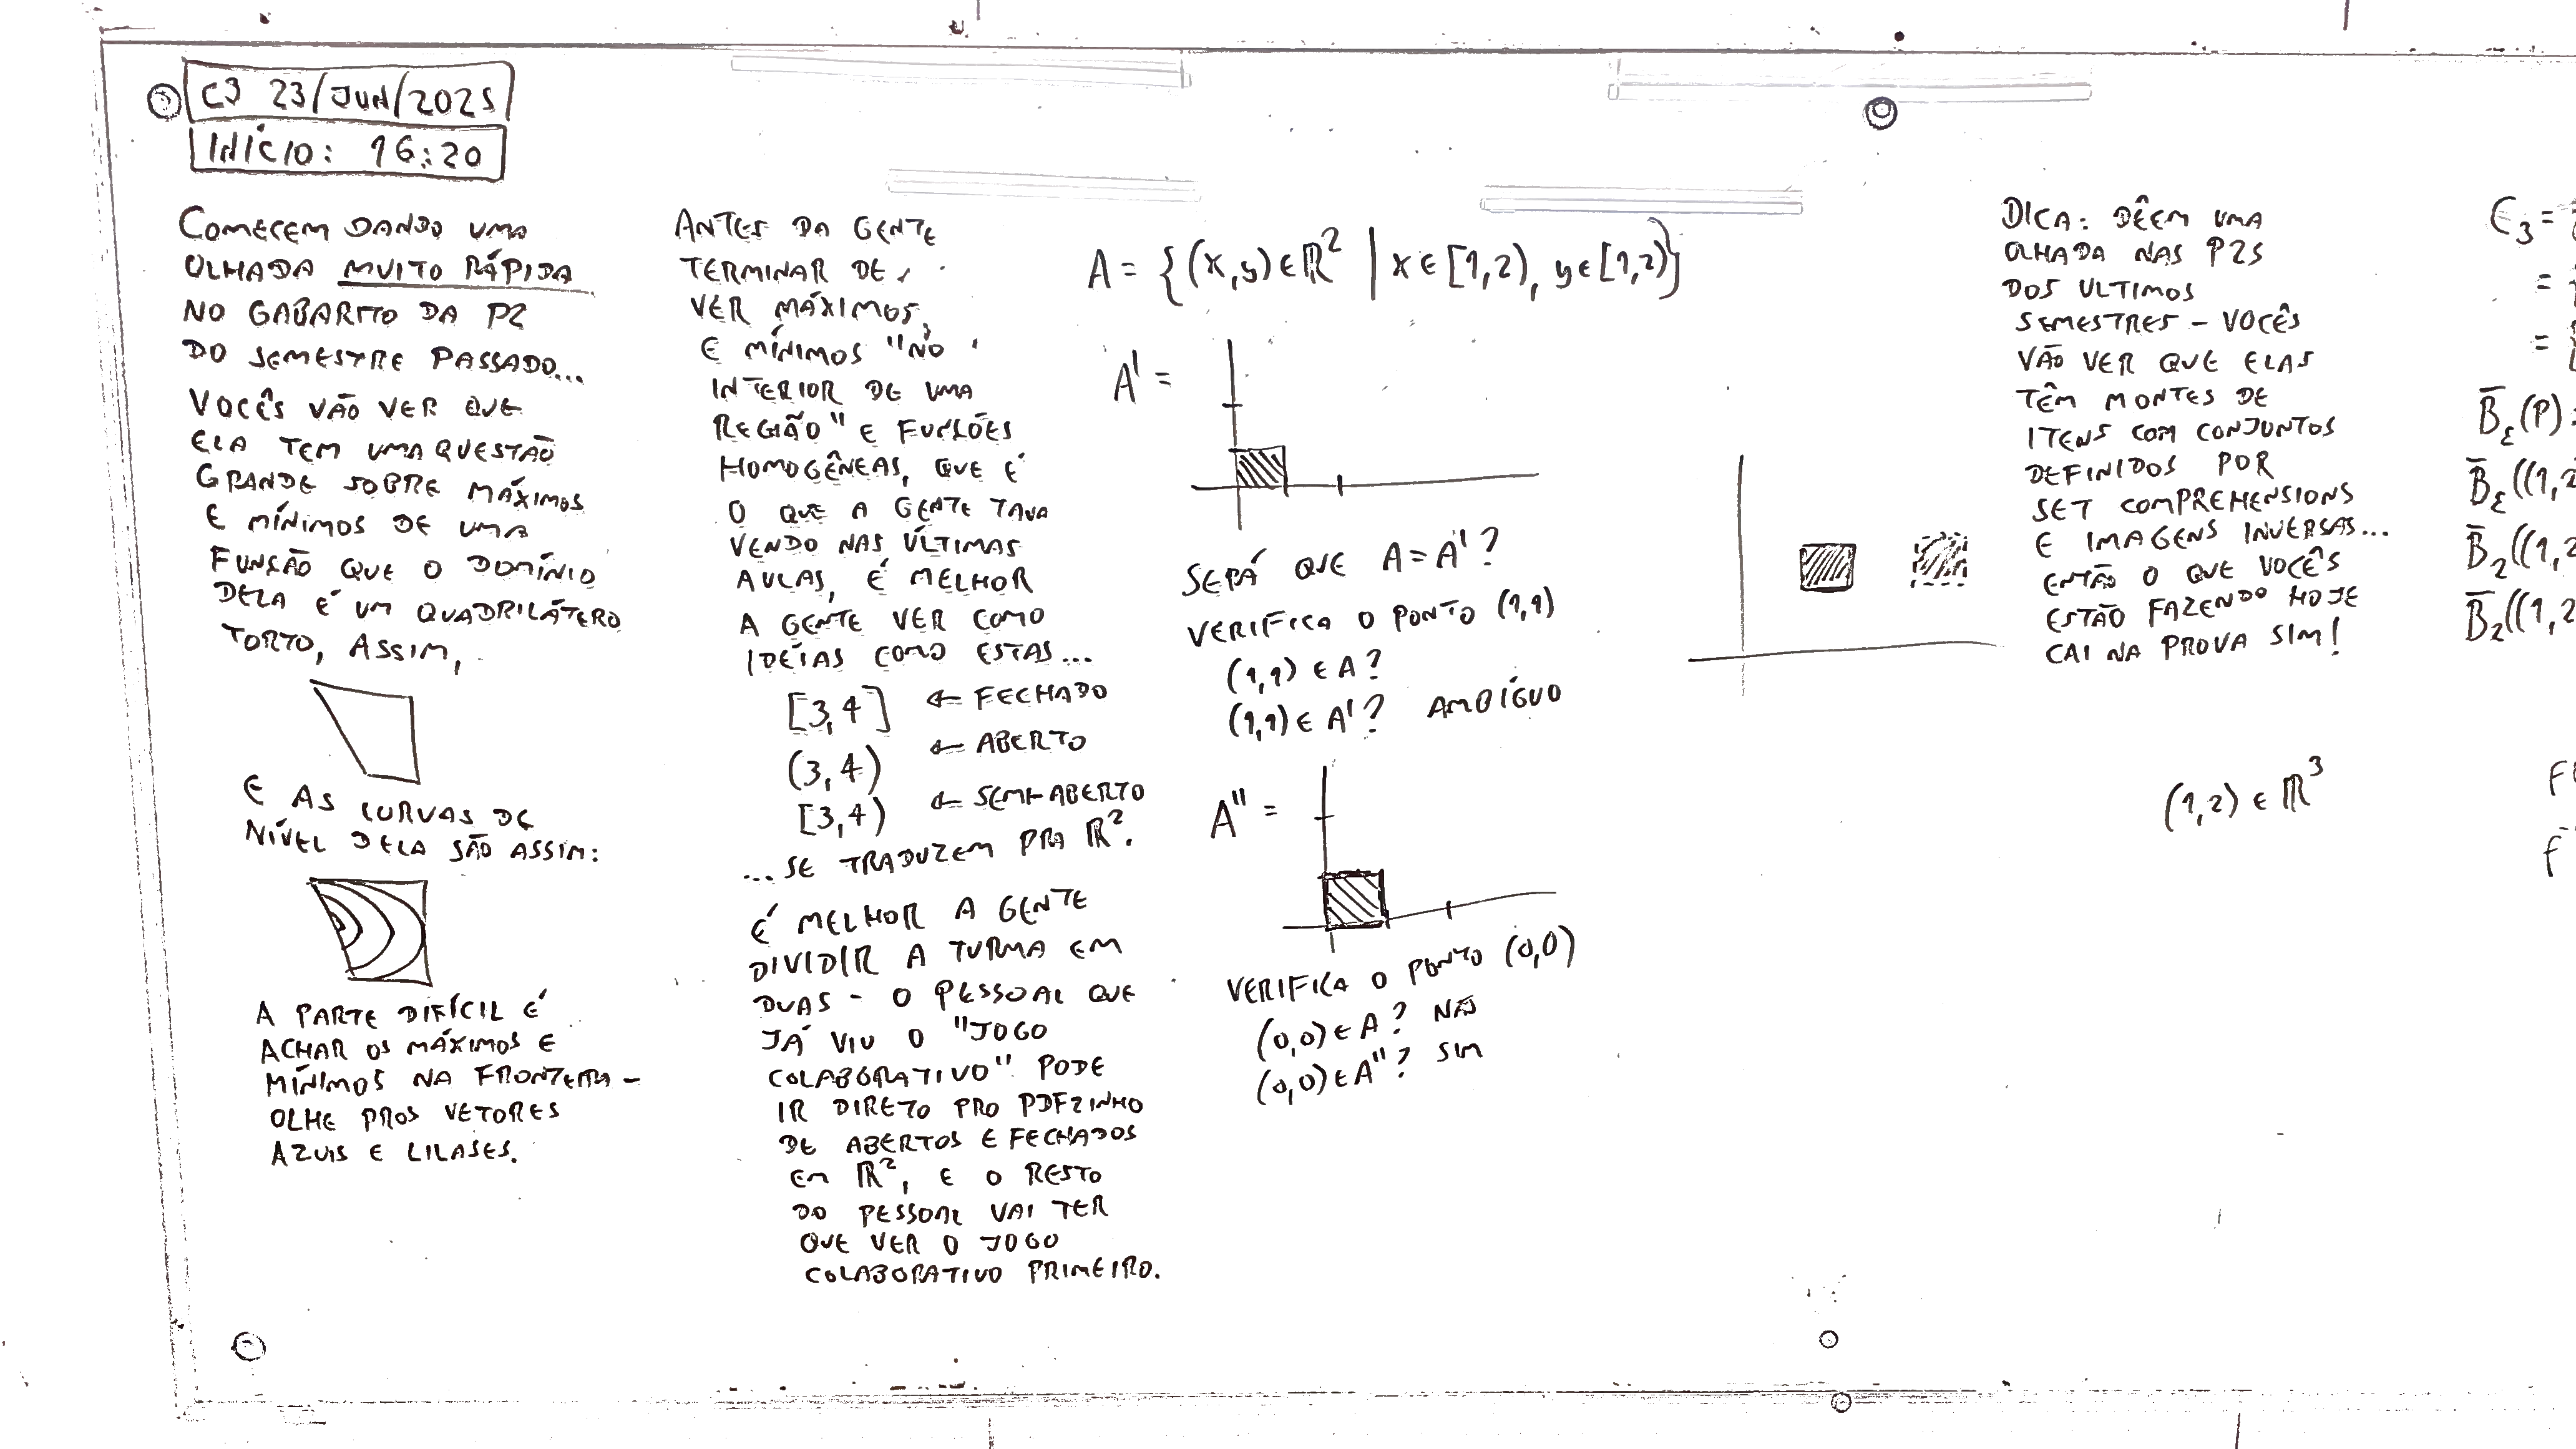 C3 23/JUN/2025
INÍCIO: 16:20
COMECEM DANDO UMA
OLHADA MUITO RÁPIDA
NO GABARITO DA P2
DO SEMESTRE PASSADO...
VOCÊS VÃO VER QUE
ELA TEM UMA QUESTÃO
GRANDE SOBRE MÁXIMOS
E MÍNIMOS DE UMA
FUNÇÃO QUE O DOMÍNIO
DELA É UM QUADRILÁTERO
TORTO, ASSIM,
E AS CURVAS DE
NÍVEL DELA SÃO ASSIM:
A PARTE DIFÍCIL É
ACHAR OS MÁXIMOS E
MÍNIMOS NA FRONTEIRA -
OLHE PROS VETORES
AZUIS E LILASES.
ANTES DA GENTE
TERMINAR DE
VER MÁXIMOS
E MÍNIMOS "NO
INTERIOR DE UMA
REGIÃO" E FUNÇÕES
HOMOGÊNEAS, QUE É
O QUE A GENTE TAVA
VENDO NAS ÚLTIMAS
AULAS, É MELHOR
A GENTE VER COMO
IDÉIAS COMO ESTAS...
[3,4] ← FECHADO
(3,4) ← ABERTO
[3,4) ← SEMI-ABERTO
... SE TRADUZEM PRA ℝ².
É MELHOR A GENTE
DIVIDIR A TURMA EM
DUAS - O PESSOAL QUE
JÁ VIU O "JOGO
COLABORATIVO" PODE
IR DIRETO PRO PDFZINHO
DE ABERTOS E FECHADOS
EM ℝ², E O RESTO
DO PESSOAL VAI TER
QUE VER O JOGO
COLABORATIVO PRIMEIRO.
A = {(x,y)∈ℝ² | x∈[1,2), y∈[1,2)}
A' =
SERÁ QUE A = A'?
VERIFICA O PONTO (1,1)
(1,1) ∈ A?
(1,1) ∈ A'? AMBÍGUO
A'' =
VERIFICA O PONTO (0,0)
(0,0) ∈ A? NÃO
(0,0) ∈ A''? SIM
DICA: DÊEM UMA
OLHADA NAS P2S
DOS ULTIMOS
SEMESTRES - VOCÊS
VÃO VER QUE ELAS
TÊM MONTES DE
ITENS COM CONJUNTOS
DEFINIDOS POR
SET COMPREHENSIONS
E IMAGENS INVERSAS...
ENTÃO O QUE VOCÊS
ESTÃO FAZENDO HOJE
CAI NA PROVA SIM!
(1,2) ∈ ℝ³
C₃ =
=
=
B̅ε(P)
B̅ε((1,2
B̅₂((1,2
B̅₂((1,2